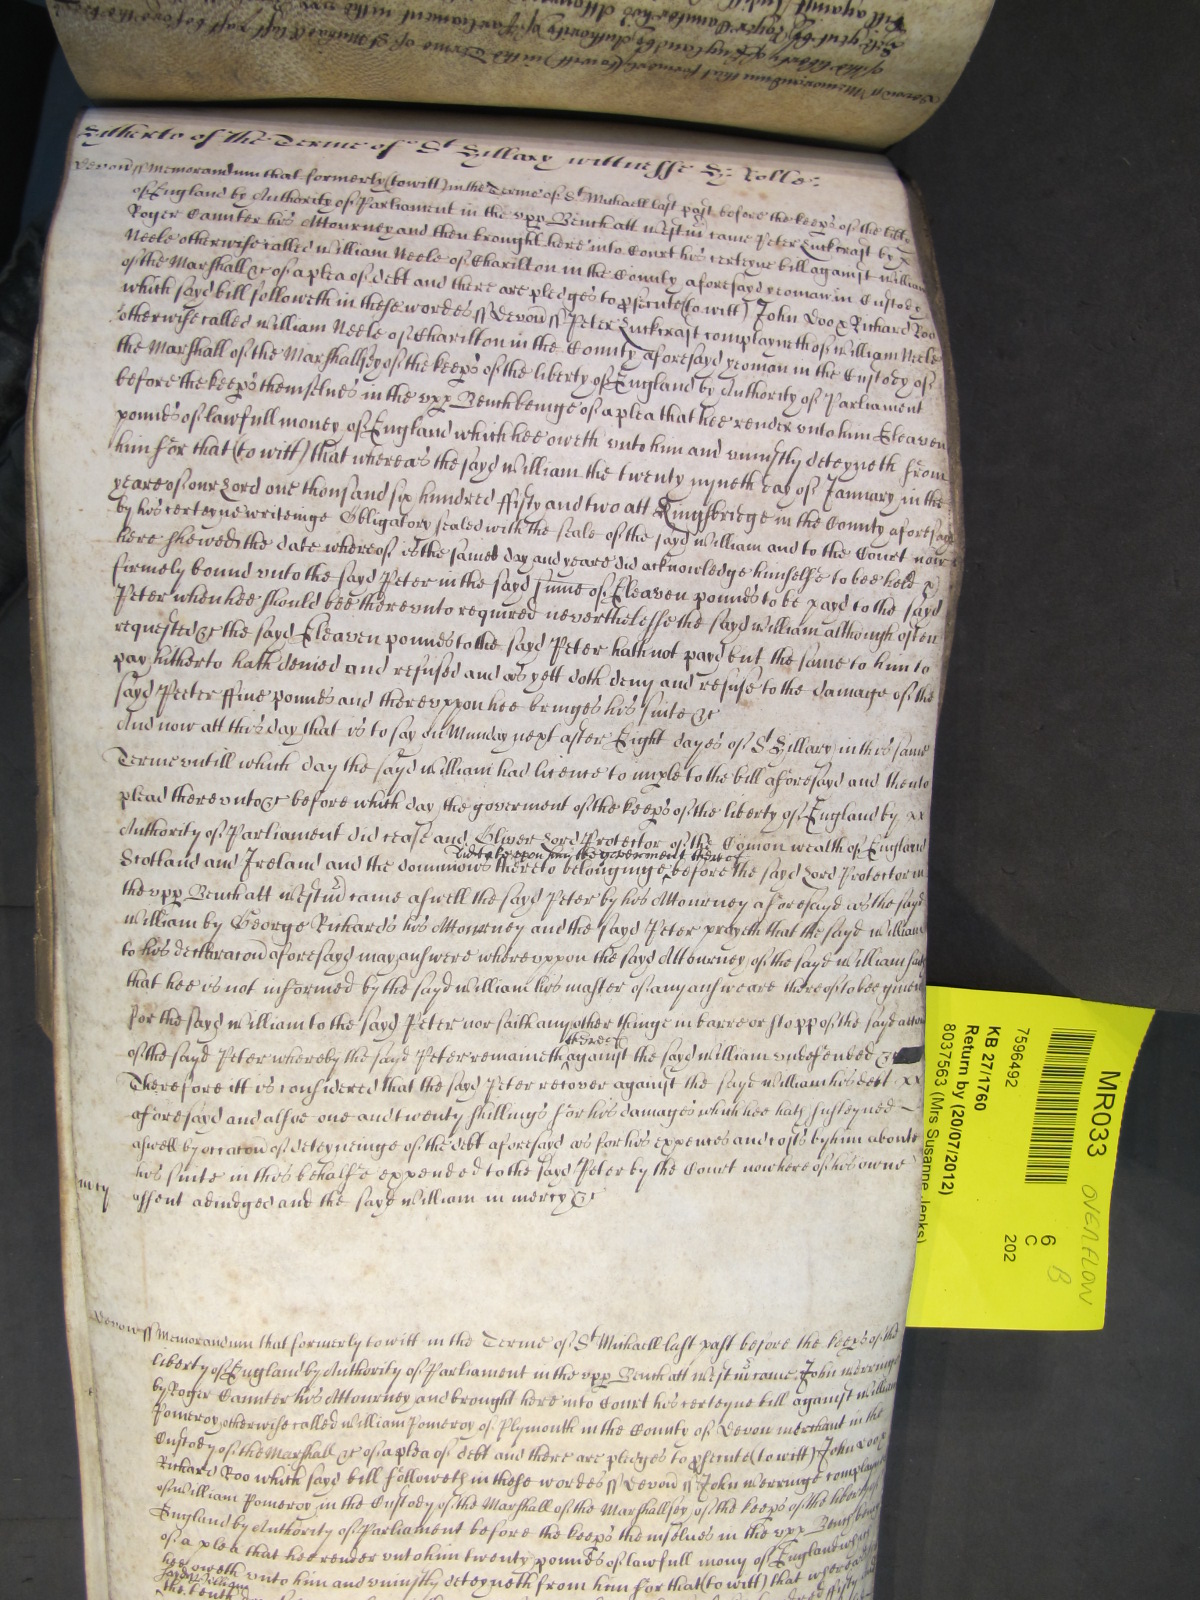 Hitherto of the Terme of St Hillary wittnesse Hy Rolle:
Devon ss Memorandum that formerly (to witt) in the Terme of St Michaell last past before the keeps of the libtie
of England by Authority of Parliament in the upp Bench att Westm came Peter Luckcraft by
Roger Caunter his Attourney and then brought here into Court his certeyne bill against William
Neele otherwise called William Neele of Charilton in the County aforesayd yeoman in Custody
of the Marshall &c of a plea of debt and there are pledges to psecute (to witt) John Doo & Richard Roo
which sayd bill followeth in these wordes ss Devon ss Peter Luckcraft complayneth of William Neele
otherwise called William Neele of Charilton in the County aforesayd yeoman in the Custody of
the Marshall of the Marshallsey of the keeps of the liberty of England by Authority of Parliament
before the keeps themselves in the upp Bench beinge of a plea that hee render unto him Eleaven
pounds of lawfull money of England which hee oweth unto him and uniustly deteyneth from
him for that (to witt) that whereas the sayd William the twenty nyneth day of January in the
yeare of our Lord one thousand six hundred ffifty and two att Kingsbridge in the County aforesayd
by his certeyne writeinge Obligatory sealed with the seale of the sayd William and to the Court now
here shewed the date whereof is the same day and yeare did acknowledge himselfe to bee held &
firmely bound unto the sayd Peter in the sayd summe of Eleaven pounds to be payd to the sayd
Peter when hee should bee thereunto required neverthelesse the sayd William although often
requested &c the sayd Eleaven pounds to the sayd Peter hath not payd but the same to him to
pay hitherto hath denied and refused and as yett doth deny and refuse to the damage of the
sayd Peeter ffive pounds and thereuppon hee bringes his suite &c
And now att this day that is to say on Munday next after Eight dayes of St Hillary in this same
Terme untill which day the sayd William had licence to imple to the bill aforesayd and then to
plead thereunto &c before which day the goverment of the keeps of the liberty of England by xx
Authority of Parliament did cease and Oliver Lord Protector of the Comon wealth of England
did take upon him the goverment thereof
Scotland and Ireland and the dominions thereto belonginge before the sayd Lord Protector in
the upp Bench att Westm came aswell the sayd Peter by his Attourney aforesayd as the sayd
William by George Richards his Attourney and the sayd Peter prayeth that the sayd William
to his declaracon aforesayd may answere whereuppon the sayd Attourney of the sayd William saith
that hee is not informed by the sayd William his master of any answeare thereof to bee given
for the sayd William to the sayd Peter nor saith any other thinge in barre or stopp of the sayd accon
thereof
of the sayd Peter whereby the sayd Peter remaineth against the sayd William undefended &c
Therefore itt is considered that the sayd Peter recover against the sayd William his debt xx
aforesayd and alsoe one and twenty shillings for his damages which hee hath susteyned
aswell by occacon of deteyneinge of the debt aforesayd as for his expences and costs by him aboute
his suite in this behalfe expended to the sayd Peter by the Court now here of his owne
mcy assent adiudged and the sayd William in mercy &c
Devon ss Memorandum that formerly to witt in the Terme of St Michaell last past before the keeps of the
liberty of England by Authority of Parliament in the upp Bench att Westm came John Merringe
by Roger Caunter his Attourney and brought here into Court his certeyne bill against William
Pomeroy otherwise called William Pomeroy of Plymouth in the County of Devon merchant in the
Custody of the Marshall &c of a plea of debt and there are pledges to psecute (to witt) John Doo &
Richard Roo which sayd bill followeth in these wordes ss Devon ss John Merringe complayneth
of William Pomeroy in the Custody of the Marshall of the Marshallsey of the keeps of the liberty of
England by Authority of Parliament before the keeps themselves in the upp Bench beinge
of a plea that hee render unto him twenty pounds of lawfull mony of England which
hee oweth unto him and uniustly deteyneth from him for that (to witt) that whereas
sayd William
the tenth
MR033
OVERFLOW
B
6
C
202
7596492
KB 27/1760
Return by (20/07/2012)
8037563 (Mrs Susanne Jenks)